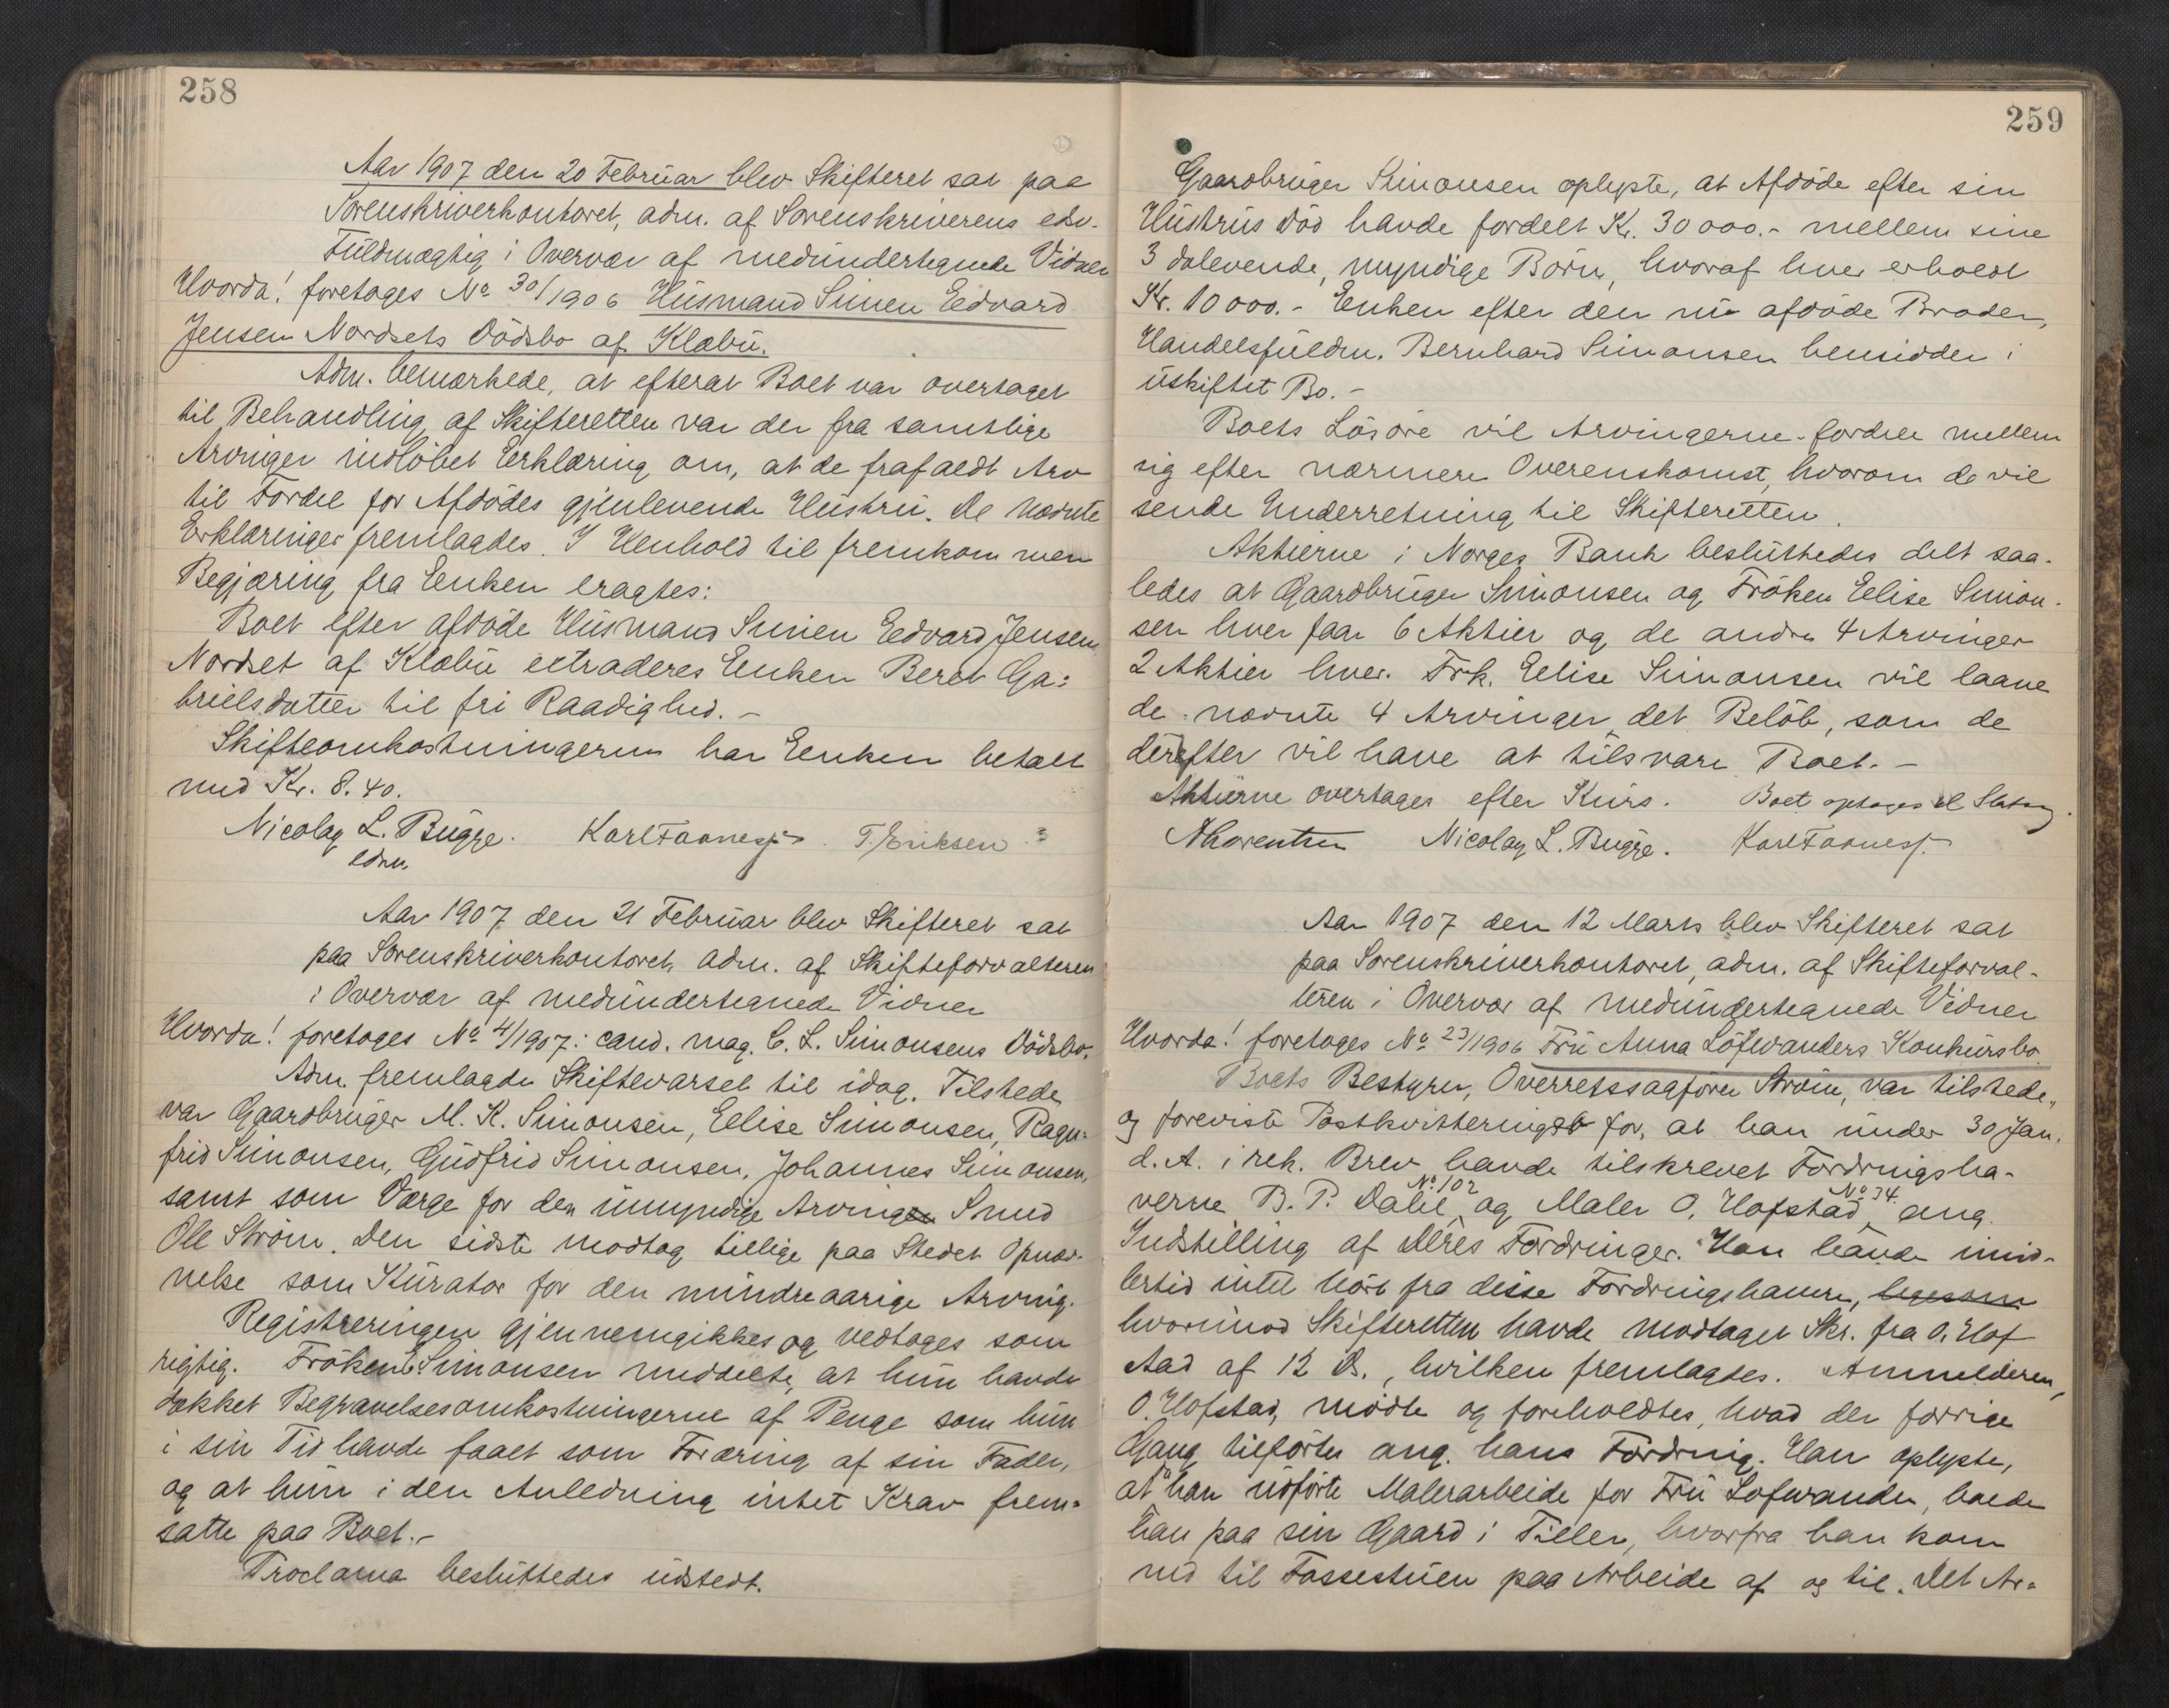 258
Aar 1907 den 20 Februar blev Skifteret sat paa
Sorenskriverkontoret, adm. af Sorenskriverens edsv.
Fuldmægtig i Overvær af medundertegnede Vidner
Hvorda! foretoges No 30/1906 Husmand Simen Edvard
Jensen Nordsets Dödsbo af Klæbu.
Adm. bemærkede, at efterat Boet var overtaget
til Behandling af Skifteretten var der fra samtlige
Arvinger indlöbet Erklæring om, at de frafaldt Arv
til Fordel for Afdödes gjenlevende Hustru. De nævnte
Erklæringer fremlagdes. I Henhold til fremkommen
Begjæring fra Enken eragtes:
Boet efter afdöde Husmand Simen Edvard Jensen
Nordset af Klæbu extraderes Enken Beret Ga=
brielsdatter til fri Raadighed. -
Skifteomkostningerne har Enken betalt
med Kr. 8.40.
Nicolay L. Bugge. Karl Faanes jr. T. Eriksen
edm.
Aar 1907 den 21 Februar blev Skifteret sat
paa Sorenskriverkontoret, adm. af Skifteforvalteren
i Overvær af medundertegnede Vidner
Hvorda! foretoges No 4/1907: cand. mag. C. L. Simonsens Dödsbo.
Adm. fremlagde Skiftevarsel til idag. Tilstede
var Gaardbruger M. K. Simonsen, Elise Simonsen, Ragn=
frid Simonsen, Gudfrid Simonsen, Johannes Simonsen,
samt som Værge for den umyndige Arving Smed
Ole Ström. Den sidste modtog tillige paa Stedet Opnæv-
nelse som Kurator for den mindreaarige Arving.
Registreringen gjennemgikkes og vedtoges som
rigtig. Fröken E. Simonsen meddelte, at hun havde
dækket Begravelsesomkostningerne af Penge som hun
i sin Tid havde faaet som Foræring af sin Fader,
og at hun i den Anledning intet Krav frem=
satte paa Boet.-
Proclama besluttedes udstedt.
259
Gaardbruger Simonsen oplyste, at Afdöde efter sin
Hustrus Död havde fordelt Kr. 30 000.- mellem sine
3 dalevende, myndige Börn, hvoraf hver erholdt
Kr. 10 000.- Enken efter den nu afdöde Broder,
Handelsfuldm. Bernhard Simonsen hensidder i
uskiftet Bo.-
Boets Lösöre vil Arvingerne fordele mellem
sig efter nærmere Overenskomst, hvorom de vil
sende Underretning til Skifteretten.
Aktierne i Norges Bank besluttedes delt saa-
ledes at Gaardbruger Simonsen og Fröken Elise Simon-
sen hver faar 6 Aktier og de andre 4 Arvinger
2 Aktier hver. Frk. Elise Simonsen vil laane
de nævnte 4 Arvinger det Belöb, som de
derefter vil have at tilsvare Boet.-
Aktierne overtages efter Kurs. Boet optages til Slutning.
Nicolay L. Bugge. Karl Faanes jr.
Aar 1907 den 12 Marts blev Skifteret sat
paa Sorenskriverkontoret, adm. af Skifteforval-
teren i Overvær af medundertegnede Vidner
Hvorda! foretoges No 23/1906 Fru Anna Löfwanders Konkursbo.
Boets Bestyrer, Overretssagförer Ström, var tilstede,
og foreviste Postkvittering for, at han under 30 Jan.
d. A. i rek. Brev havde tilskrevet Fordringsha-
verne B. P. Dalie No 102 og Maler O. Hofstad No 34. ang.
Indstilling af deres Fordringer. Han havde imid-
lertid intet hört fra disse Fordringshavere, ligesom
hvorimod Skifteretten havde modtaget Skr. fra O. Hof
stad af 12 ds., hvilken fremlagdes. Anmelderen,
O. Hofstad, mödte og foreholdtes, hvad der forrige
Gang tilförtes ang. hans Fordring. Han oplyste,
at han udförte Malerarbeide for Fru Löfwander, boede
han paa sin Gaard i Tiller, hvorfra han kom
ned til Fossestuen paa Arbeide af og til. Det Ar=